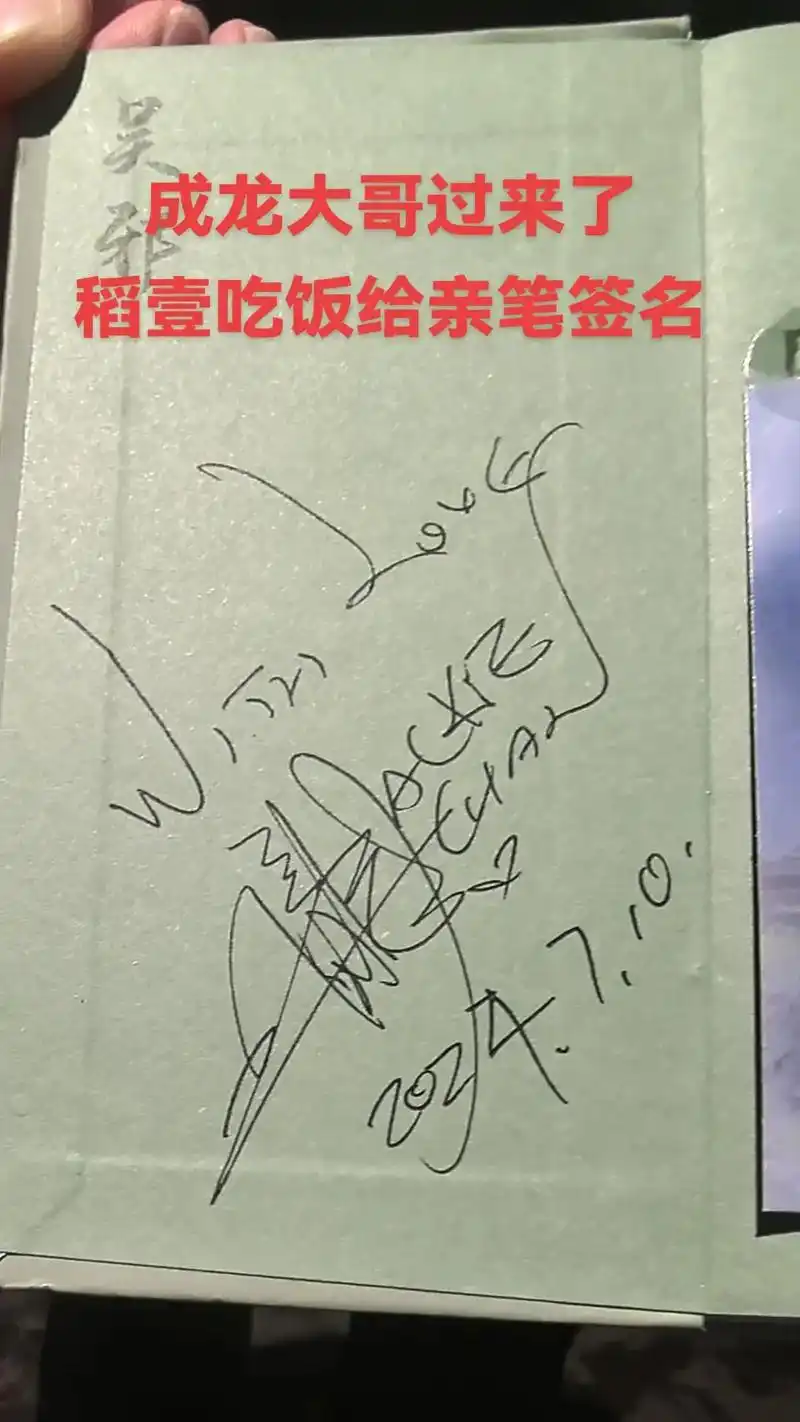 吴邪
成龙大哥过来了
稻壹吃饭给亲笔签名
Love
With
JACKIE
CHAN
2024.7.10.